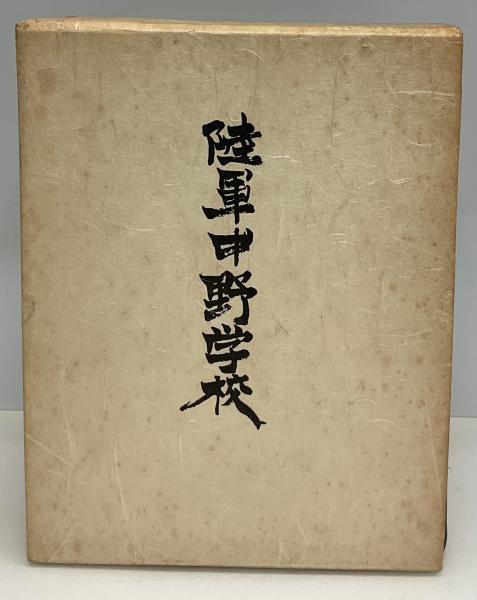 陸軍中野学校